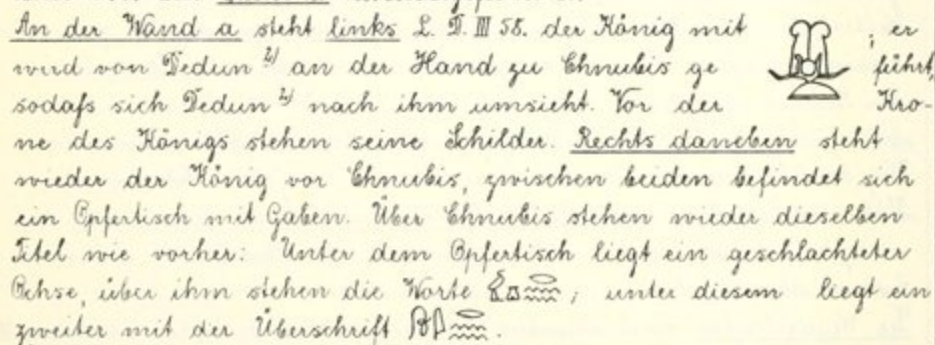 An der Wand a steht links L. D. III 58. der König mit ; er
wird von Dedun 2) an der Hand zu Chnubis ge führt,
sodafs sich Dedun 2) nach ihm umsieht. Vor der Kro-
ne des Königs stehen seine Schilder. Rechts daneben steht
wieder der König vor Chnubis, zwischen beiden befindet sich
ein Opfertisch mit Gaben. Über Chnubis stehen wieder dieselben
Titel wie vorher: Unter dem Opfertisch liegt ein geschlachteter
Ochse, über ihm stehen die Worte ; unter diesem liegt ein
zweiter mit der Überschrift .